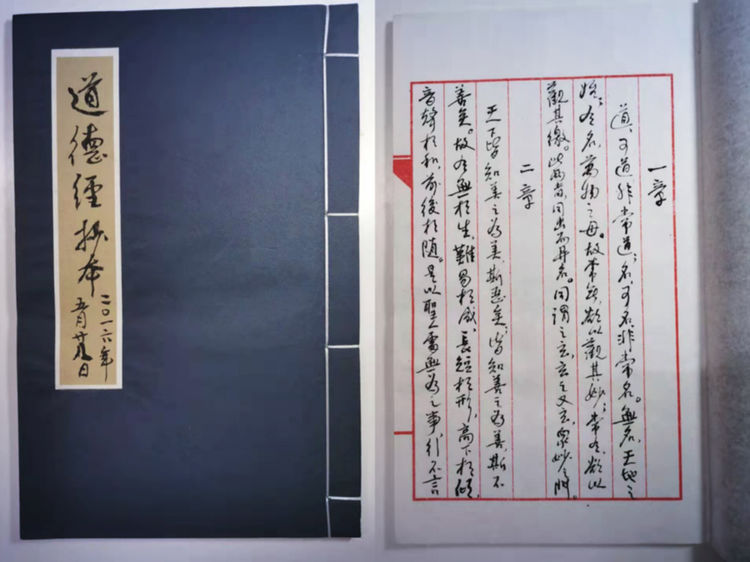 道德經抄本
二〇一六年
五月廿日
一章
道，可道非常道；名，可名非常名。無名，天地之
始；有名，萬物之母。故常無，欲以觀其妙；常有，欲以
觀其徼。此兩者，同出而異名。同謂之玄，玄之又玄，眾妙之門。
二章
天下皆知美之為美，斯惡矣；皆知善之為善，斯不
善矣。故有無相生，難易相成，長短相形，高下相傾，
音聲相和，前後相隨。是以聖處無為之事，行不言